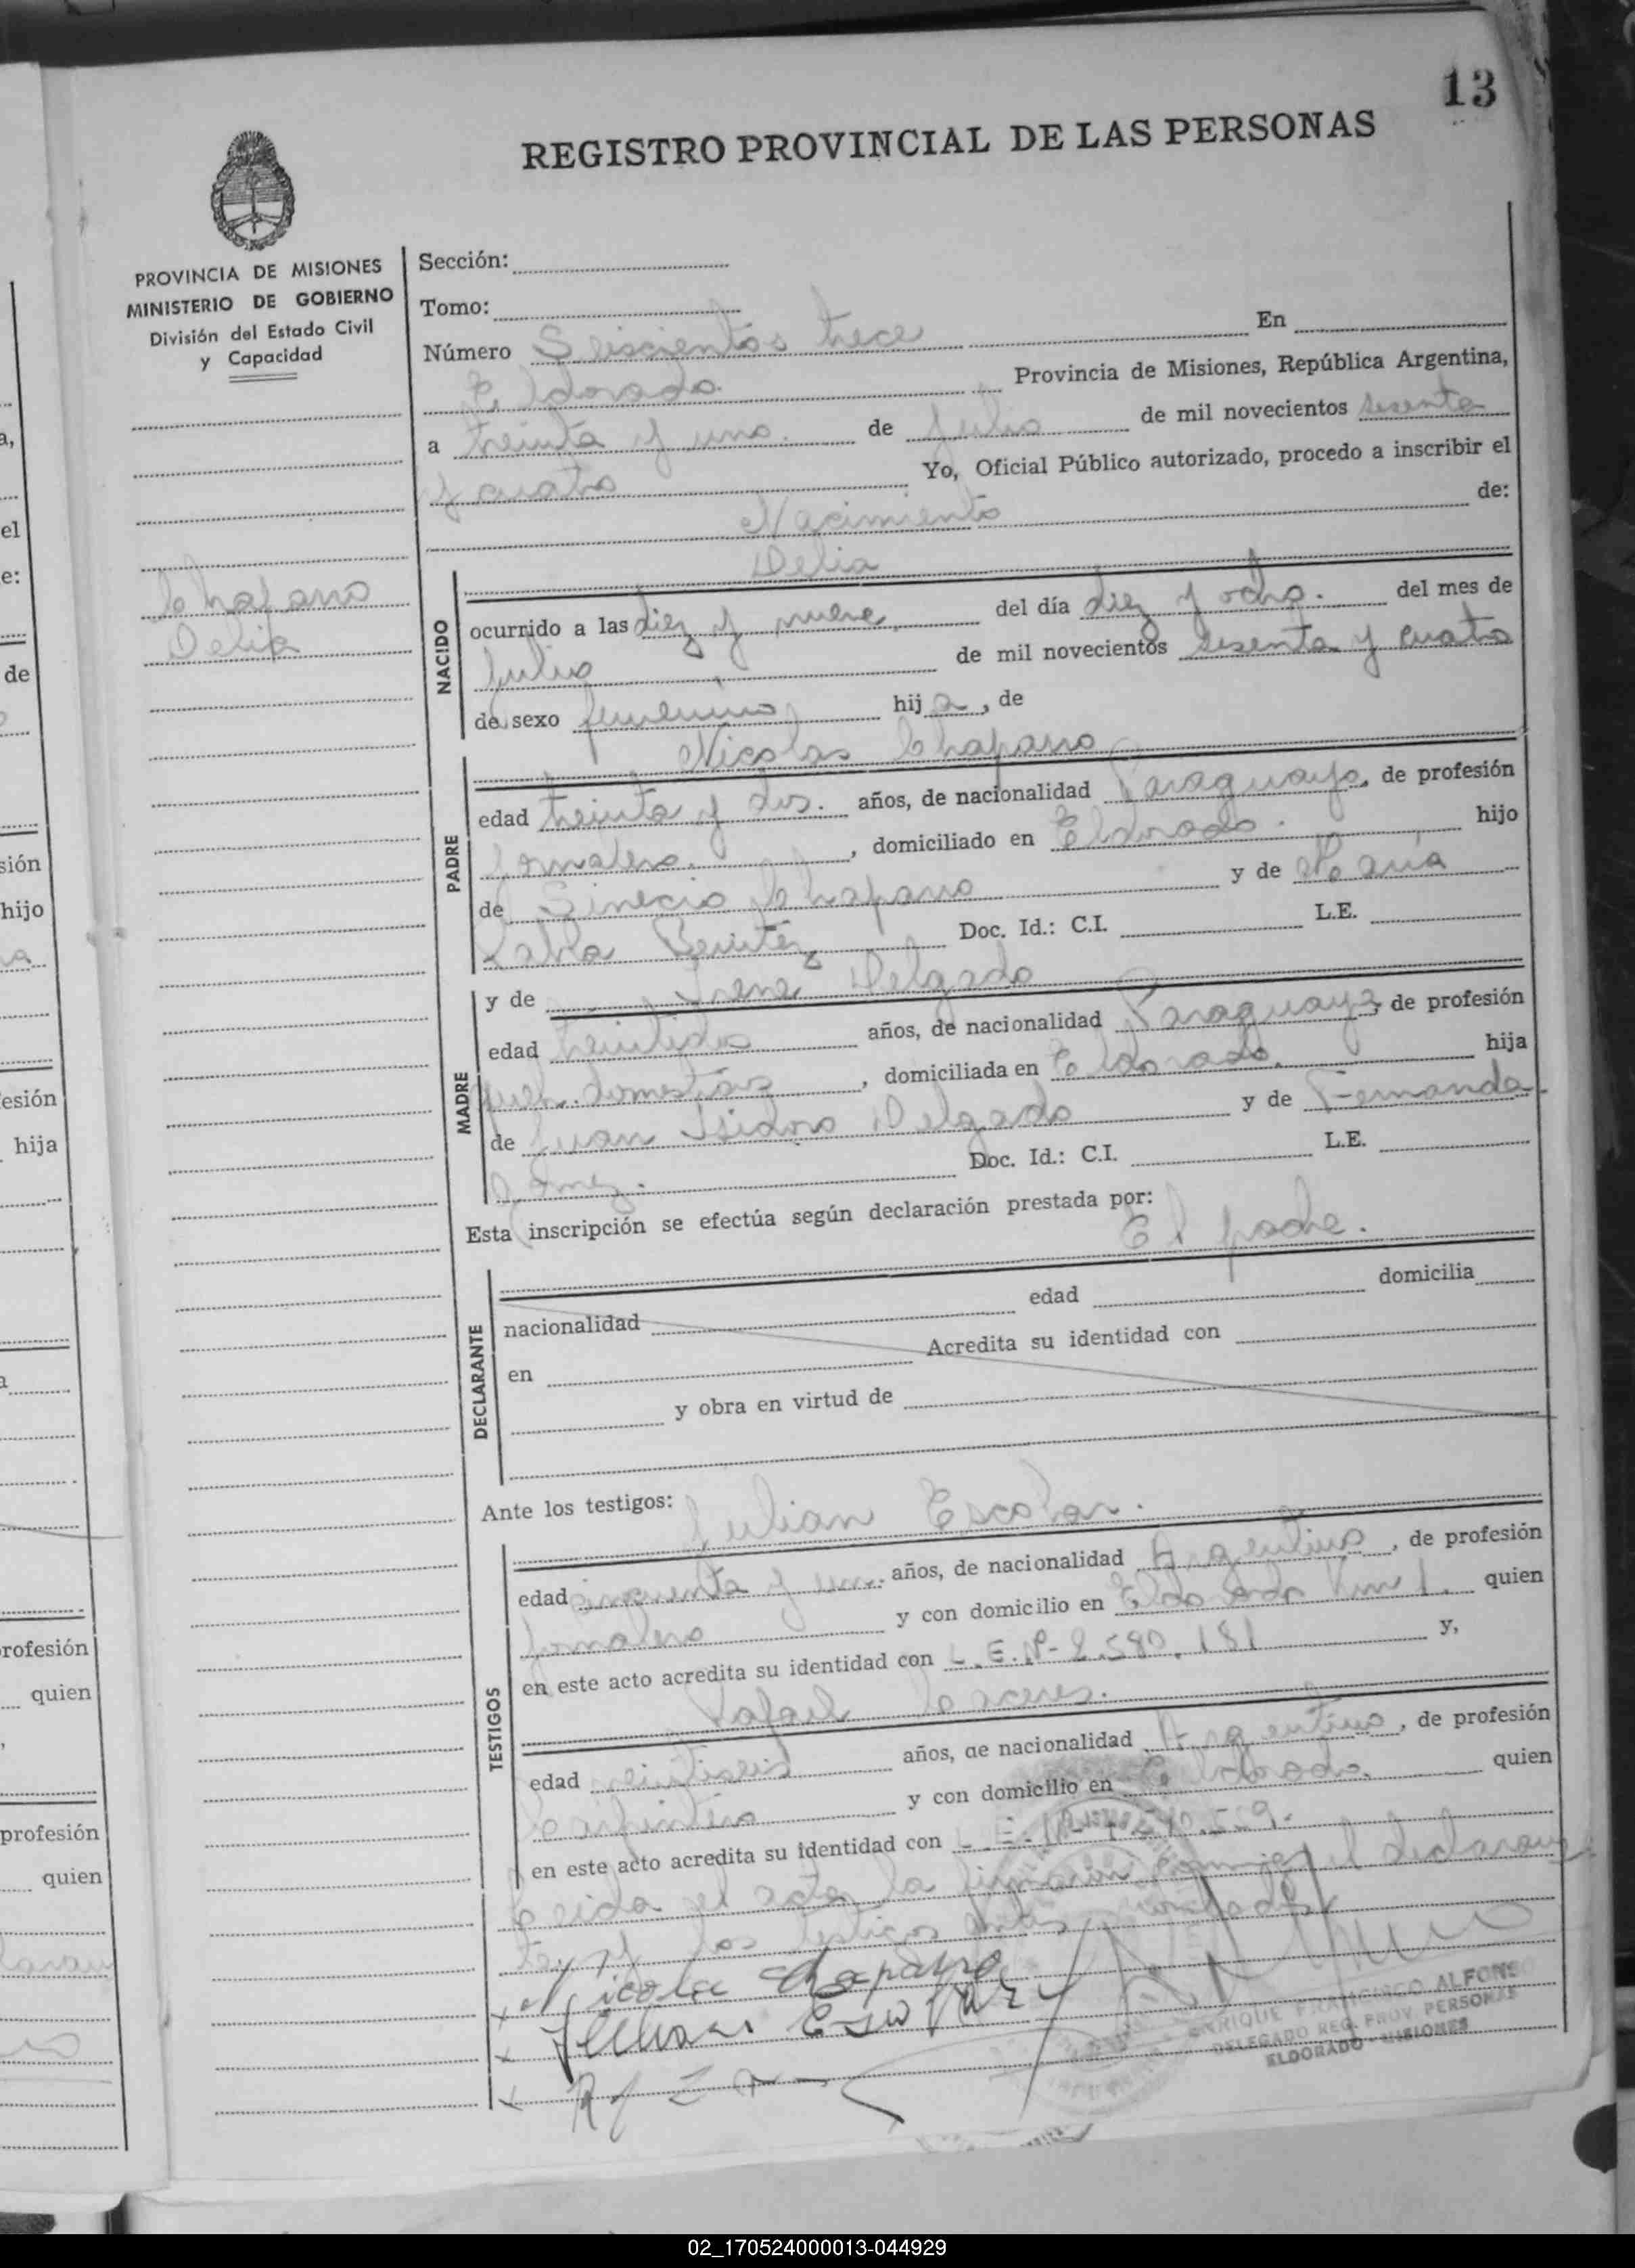 13
REGISTRO PROVINCIAL DE LAS PERSONAS
PROVINCIA DE MISIONES
MINISTERIO DE GOBIERNO
División del Estado Civil
y Capacidad
Chaparro
Delia
Sección:
Tomo:
Número Seiscientos trece En
Eldorado. Provincia de Misiones, República Argentina,
a treinta y uno. de Julio de mil novecientos sesenta
y cuatro Yo, Oficial Público autorizado, procedo a inscribir el
Nacimiento de:
Delia
NACIDO
ocurrido a las diez y nueve, del día diez y ocho. del mes de
Julio de mil novecientos sesenta y cuatro
de sexo femenino hij a, de
Nicolas Chaparro
PADRE
edad treinta y dos. años, de nacionalidad Paraguayo, de profesión
Jornalero. , domiciliado en Eldorado. hijo
de Sinecio Chaparro y de María
Benitez Doc. Id.: C.I. L.E.
MADRE
y de Irene Delgado
edad años, de nacionalidad Paraguaya, de profesión
domesticos , domiciliada en Eldorado. hija
de Juan Isidoro Delgado y de Fernanda
Gomez. Doc. Id.: C.I. L.E.
Esta inscripción se efectúa según declaración prestada por:
El padre.
DECLARANTE
nacionalidad edad domicilia
en Acredita su identidad con
y obra en virtud de
Ante los testigos: Julian Escobar.
TESTIGOS
edad cincuenta y un. años, de nacionalidad Argentino, de profesión
jornalero y con domicilio en Eldorado Km 1. quien
en este acto acredita su identidad con L.E.Nº-2.580.181 y,
Rafael Caceres.
edad veintiseis años, de nacionalidad Argentino, de profesión
Carpintero y con domicilio en Eldorado. quien
en este acto acredita su identidad con L.E.Nº
Leida el acta la firmaron conmigo el declaran
te y los testigos antes
x Nicolas Chaparro
x Julian Escobar
x
ENRIQUE FRANCISCO ALFONSO
DELEGADO REG. PROV. PERSONAS
ELDORADO - MISIONES
a,
el
e:
de
sión
hijo
esión
hija
rofesión
quien
profesión
quien
02_170524000013-044929